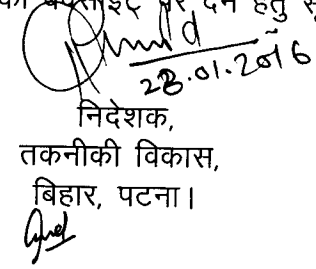 पर देने हेतु
28.01.2016
निदेशक,
तकनीकी विकास,
बिहार, पटना।